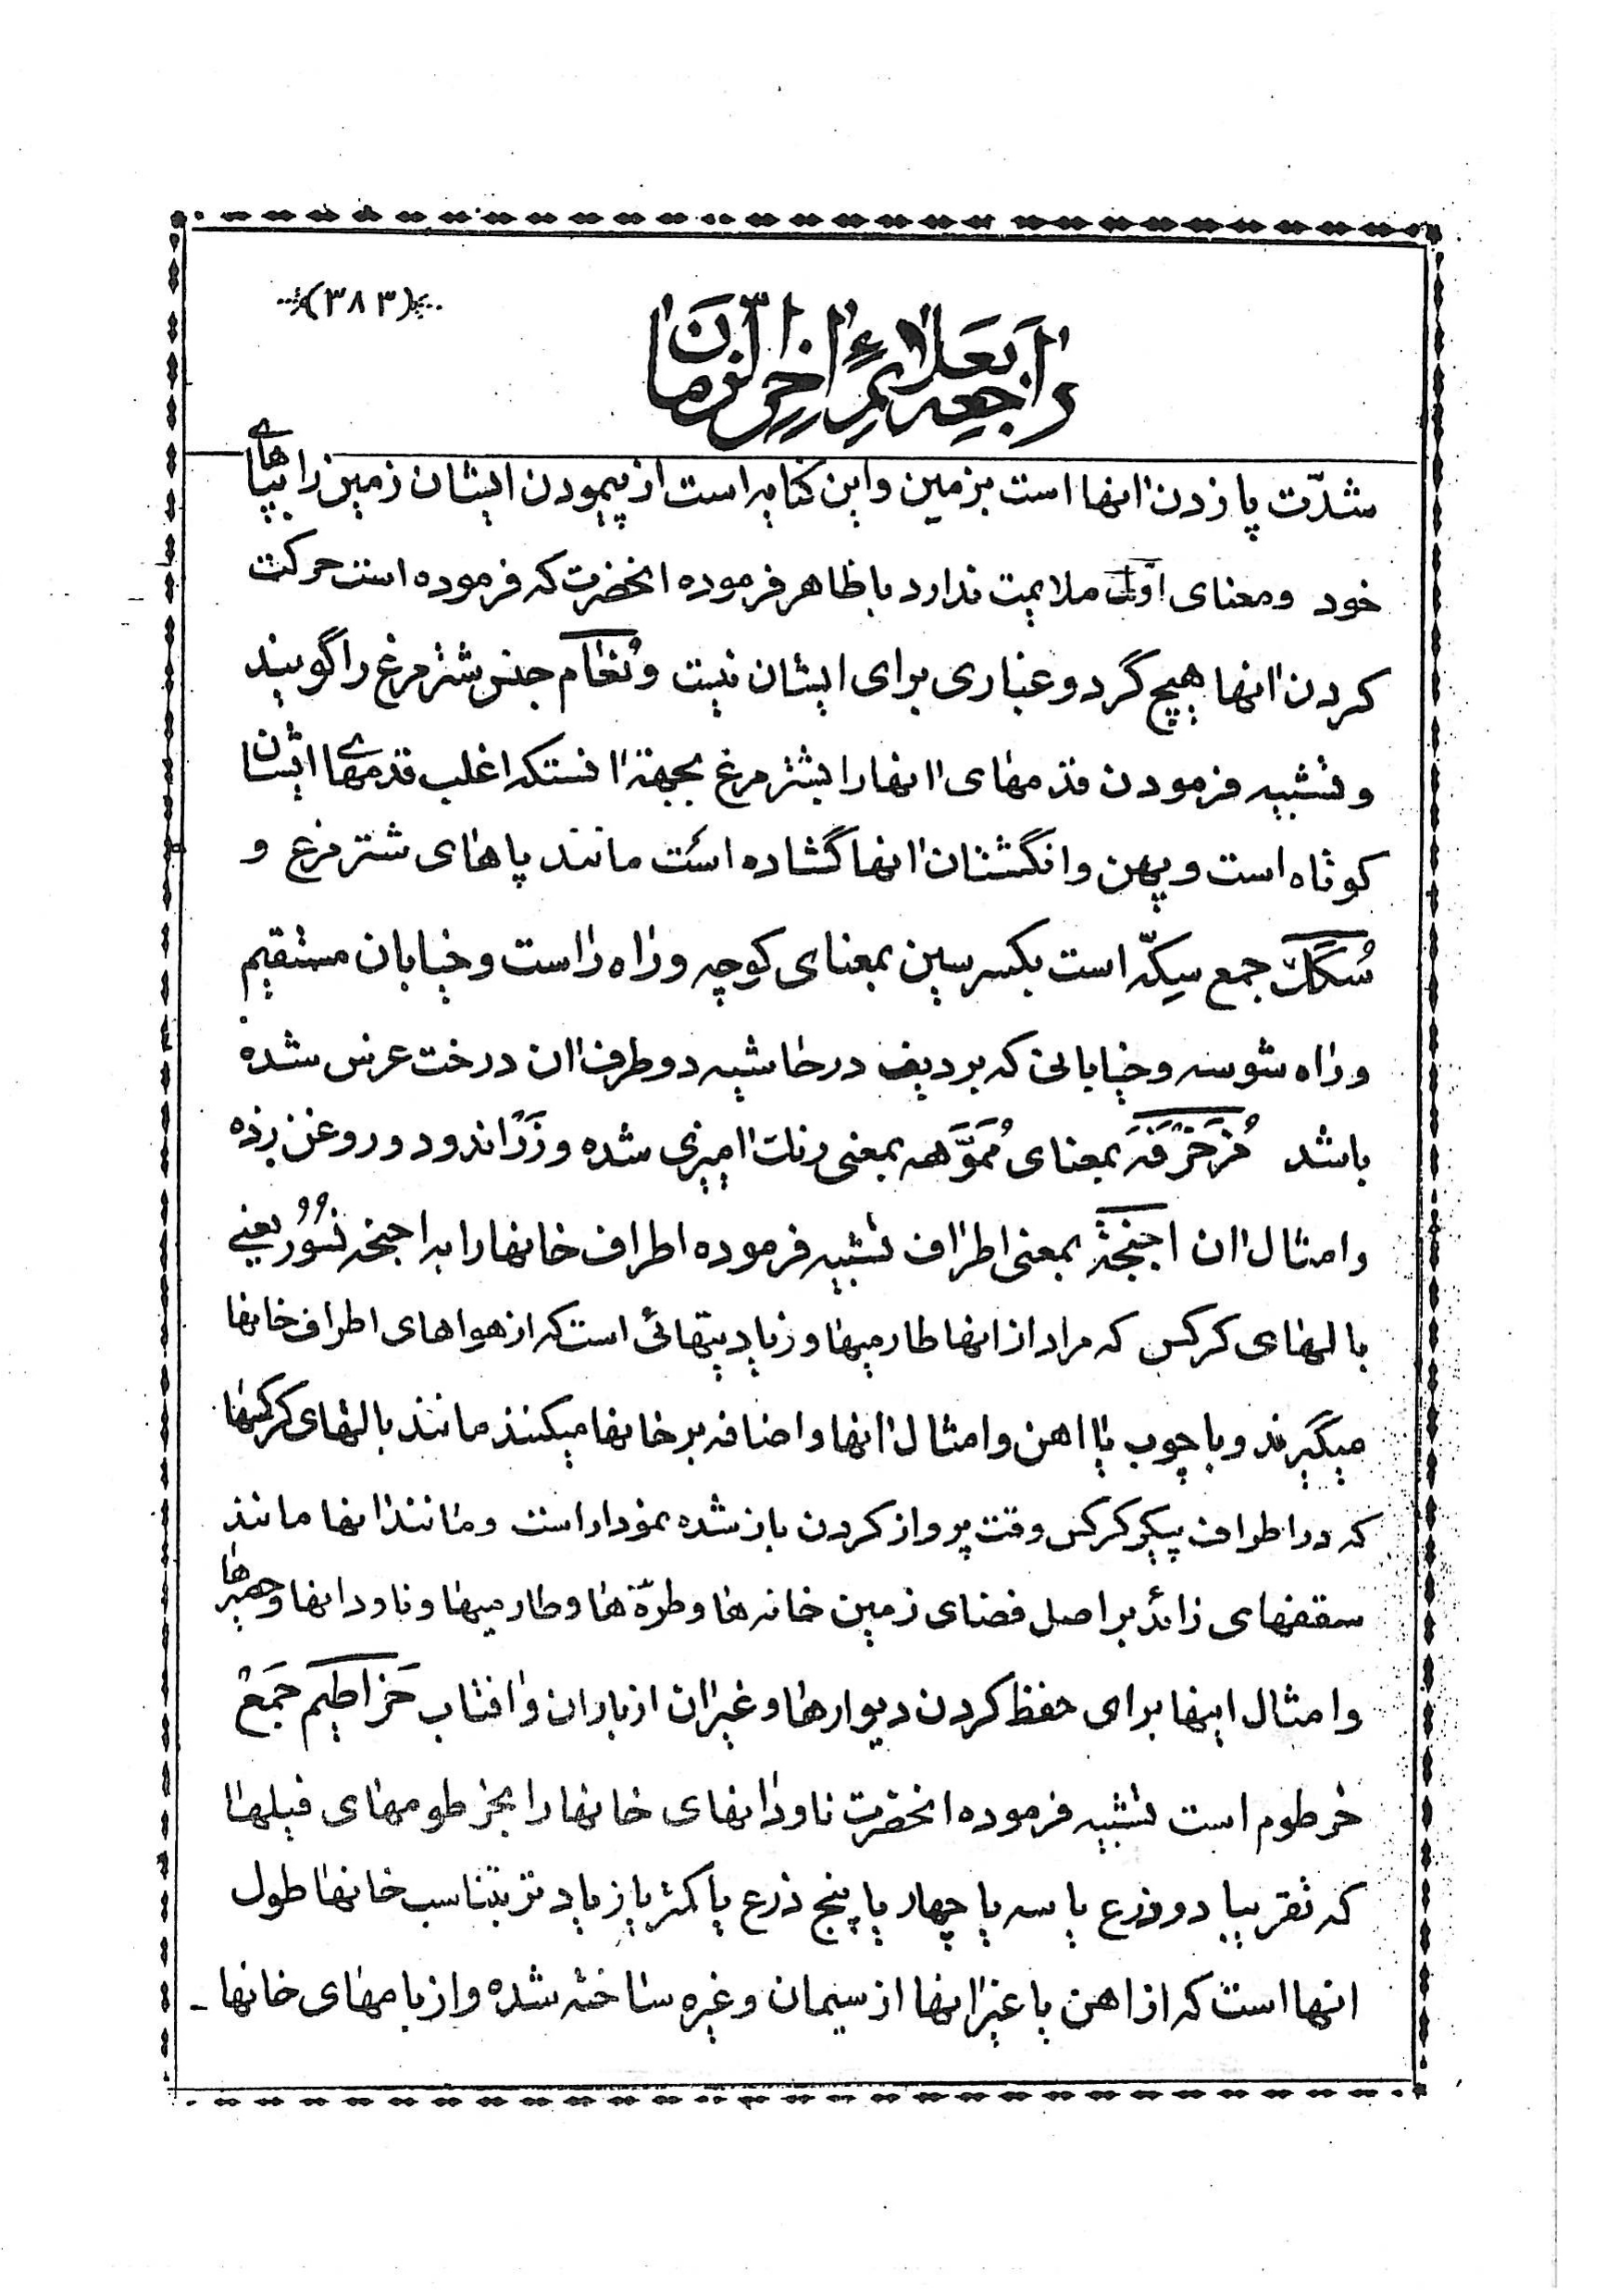 (۳۸۳)
راجعه بعلائم اخر الزمان
شدّت پا زدن انها است بزمین و این کنایه است از پیمودن ایشان زمین را بپاهای
خود و معنای اوّل ملایمت ندارد با ظاهر فرموده انحضرت که فرموده است حرکت
کردن انها هیچ گرد و غباری برای ایشان نیست و نُعٰام جنس شتر مرغ را گویند
و تشبیه فرمودن قدمهای انها را بشتر مرغ بجهة انستکه اغلب قدمهای ایشان
کوتاه است و پهن و انگشتان انها گشاده است مانند پاهای شتر مرغ و
سُکَک جمع سِکّه است بکسر سین بمعنای کوچه و راه راست و خیابان مستقیم
و راه شوسه و خیابانی که بردیف در حاشیه دو طرف ان درخت غرس شده
باشد مُزَخْرَفَه بمعنای مُمَوَّهه بمعنی رنگ امیزی شده و زَرْ اندود و روغن زده
و امثال ان اجنِحَة بمعنی اطراف تشبیه فرموده اطراف خانها را به اجنحه نسُور یعنی
بالهای کرکس که مراد از انها طارمیها و زیادیتهائی است که از هواهای اطراف خانها
میگیرند و با چوب یا اهن و امثال انها و اضافه بر خانها میکنند مانند بالهای کرکسها
که در اطراف پیکر کرکس وقت پرواز کردن باز شده نمودار است و مانند انها مانند
سقفهای زائد بر اصل فضای زمین خانه ها و طرّه ها و طارمیها و ناودانها و
و امثال اینها برای حفظ کردن دیوارها و غیر ان از باران و افتاب خَراطیم جَمعْ
خرطوم است تشبیه فرموده انحضرت ناودانهای خانها را بخرطومهای فیلها
که تقریبا دو ذرع یا سه یا چهار یا پنج ذرع یا کمتر یا زیادتر بتناسب خانها طول
انها است که از اهن یا غیر انها از سیمان و غیره ساخته شده و از بامهای خانها -